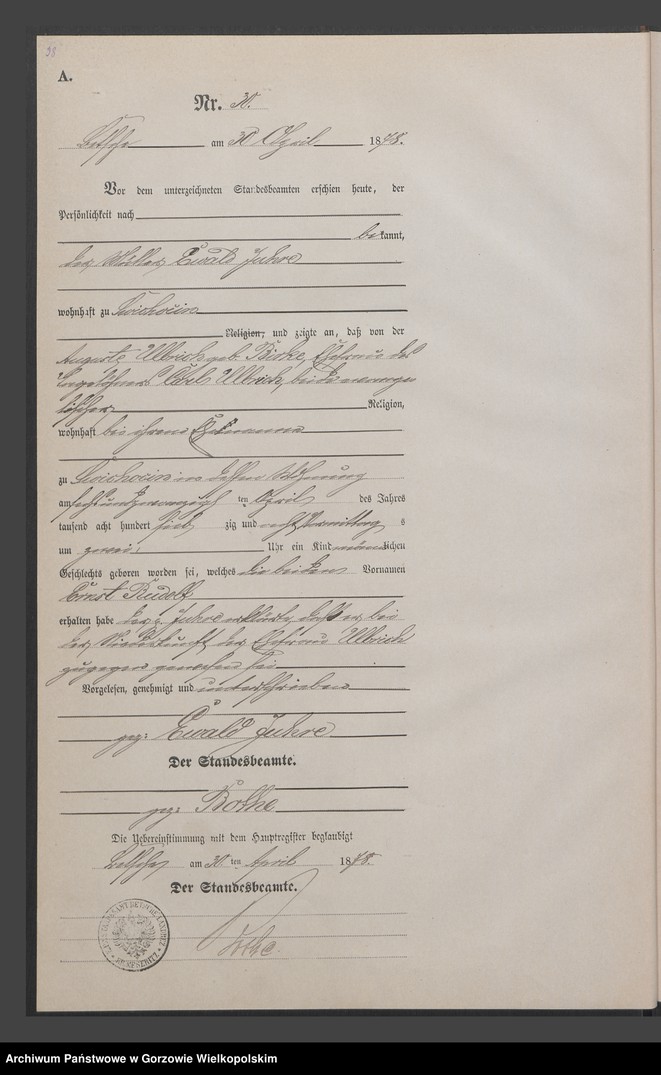 98
A.
Nr. 30.
Betsche am 30 April 1878.
Vor dem unterzeichneten Standesbeamten erschien heute, der
Persönlichkeit nach
bekannt,
der Müller Ewald Juhre
wohnhaft zu
Religion, und zeigte an, daß von der
Auguste Ullrich geb. Ehefrau des
Tagelöhners Carl Ullrich, beide evange
lischer Religion,
wohnhaft bei ihrem Ehemanne
zu in dessen Wohnung
am sechsundzwanzigsten April des Jahres
tausend acht hundert siebzig und acht Vormittags
um zwei Uhr ein Kind männlichen
Geschlechts geboren worden sei, welches die beiden Vornamen
Ernst Rudolf
erhalten habe der p. Juhre erklärte, daß er bei
der Niederkunft der Ehefrau Ullrich
zugegen gewesen sei
Vorgelesen, genehmigt und unterschrieben
gez: Ewald Juhre
Der Standesbeamte.
gez: Bothe
Die Uebereinstimmung mit dem Hauptregister beglaubigt
Betsche am 30 ten April 1878.
Der Standesbeamte.
Bothe.
KR. MESERITZ
Archiwum Państwowe w Gorzowie Wielkopolskim